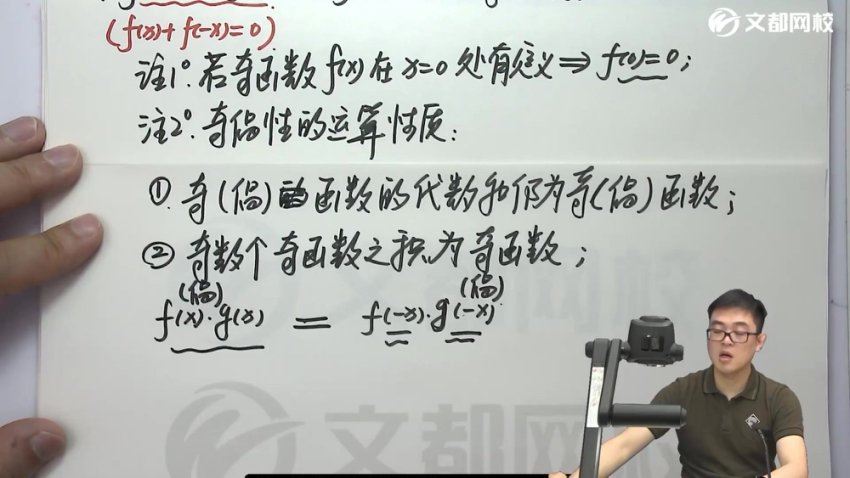 文都网校
(f(x)+f(-x)=0)
注1°. 若奇函数 f(x) 在 x=0 处有定义⇒ f(0)=0;
注2°. 奇偶性的运算性质:
①. 奇(偶)函数的代数和仍为奇(偶)函数;
② 奇数个奇函数之积为奇函数;
(偶) (偶)
f(x)·g(x) = f(-x)·g(-x)
文都网校
文都网校